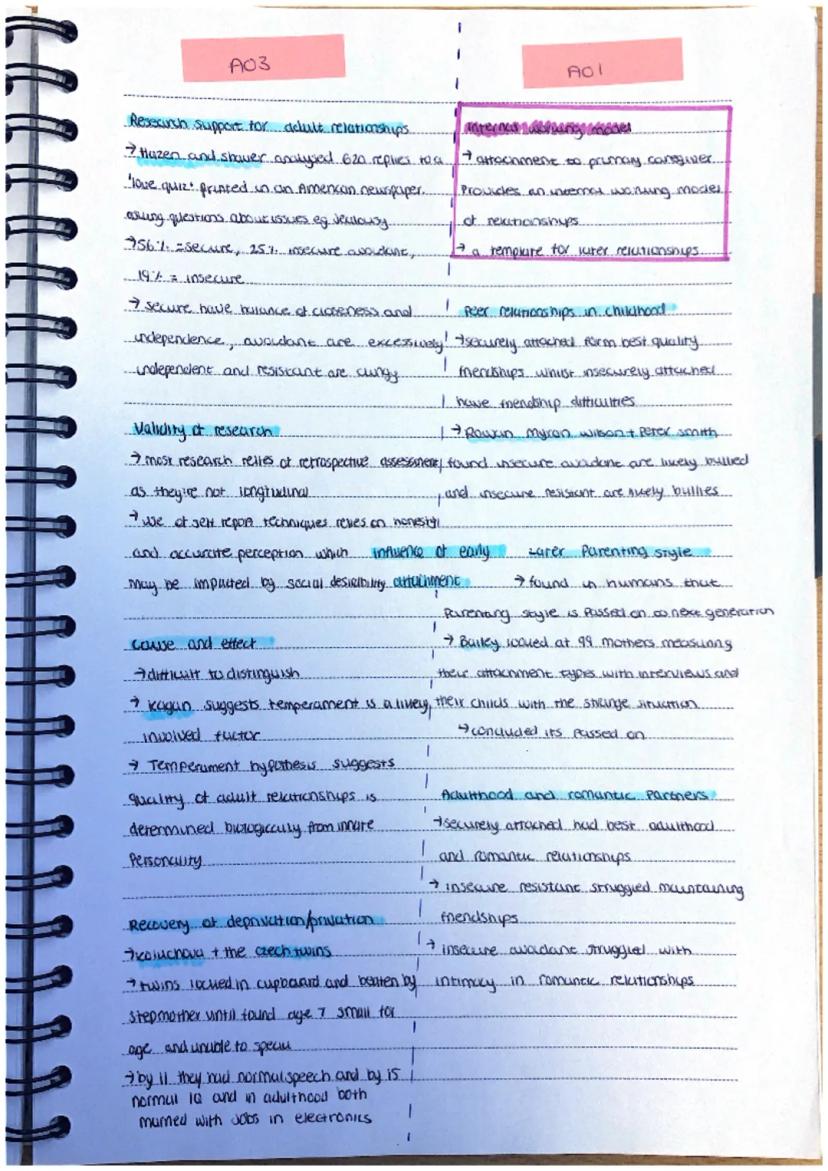 AO3
Research support for adult relationships
→ Hazen and shaver analysed 620 replies to a
'love quiz' printed in an American newspaper
asking questions about issues eg jealousy
→ 56% = secure, 25% insecure avoidant,
19% = insecure
→ secure have balance of closeness and
independence, avoidant are excessively
independent and resistant are clingy
Validity of research
→ most research relies of retrospective assessment
as they're not longitudinal
→ use of self report techniques relies on honesty
and accurate perception which
may be impacted by social desirbility
cause and effect
→ difficult to distinguish
→ Kagan suggests temperament is a likely
involved factor
→ Temperament hypothesis suggests
quality of adult relationships is
determined biologically from innate
Personality
Recovery of deprivation/privation
→ Koluchova + the czech twins
→ twins locked in cupboard and beaten by
stepmother until found age 7 small for
age and unable to speak
→ by 11 they had normal speech and by 15
normal IQ and in adulthood both
married with jobs in electronics
influence of early
attachment
AO1
internal working model
→ attachment to primary caregiver
Provides an internal working model
of relationships
→ a template for later relationships
Peer relationships in childhood
→ securely attached form best quality
friendships whilst insecurely attached
have friendship difficulties
→ Rowan Myron wilson + Peter smith
found insecure avoidant are likely bullied
and insecure resistant are likely bullies
Later Parenting style
→ found in humans that
Parenting style is passed on to next generation
→ Bailey looked at 99 mothers measuring
their attachment types with interviews and
their childs with the strange situation
→ concluded its passed on
Adulthood and romantic Partners
→ securely attached had best adulthood
and romantic relationships
→ insecure resistant struggled maintaining
friendships
→ insecure avoidant struggled with
intimacy in romantic relationships